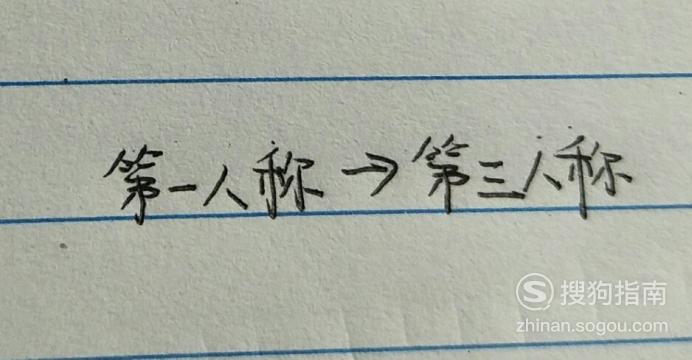 第一人称→第三人称
搜狗指南
zhinan.sogou.com